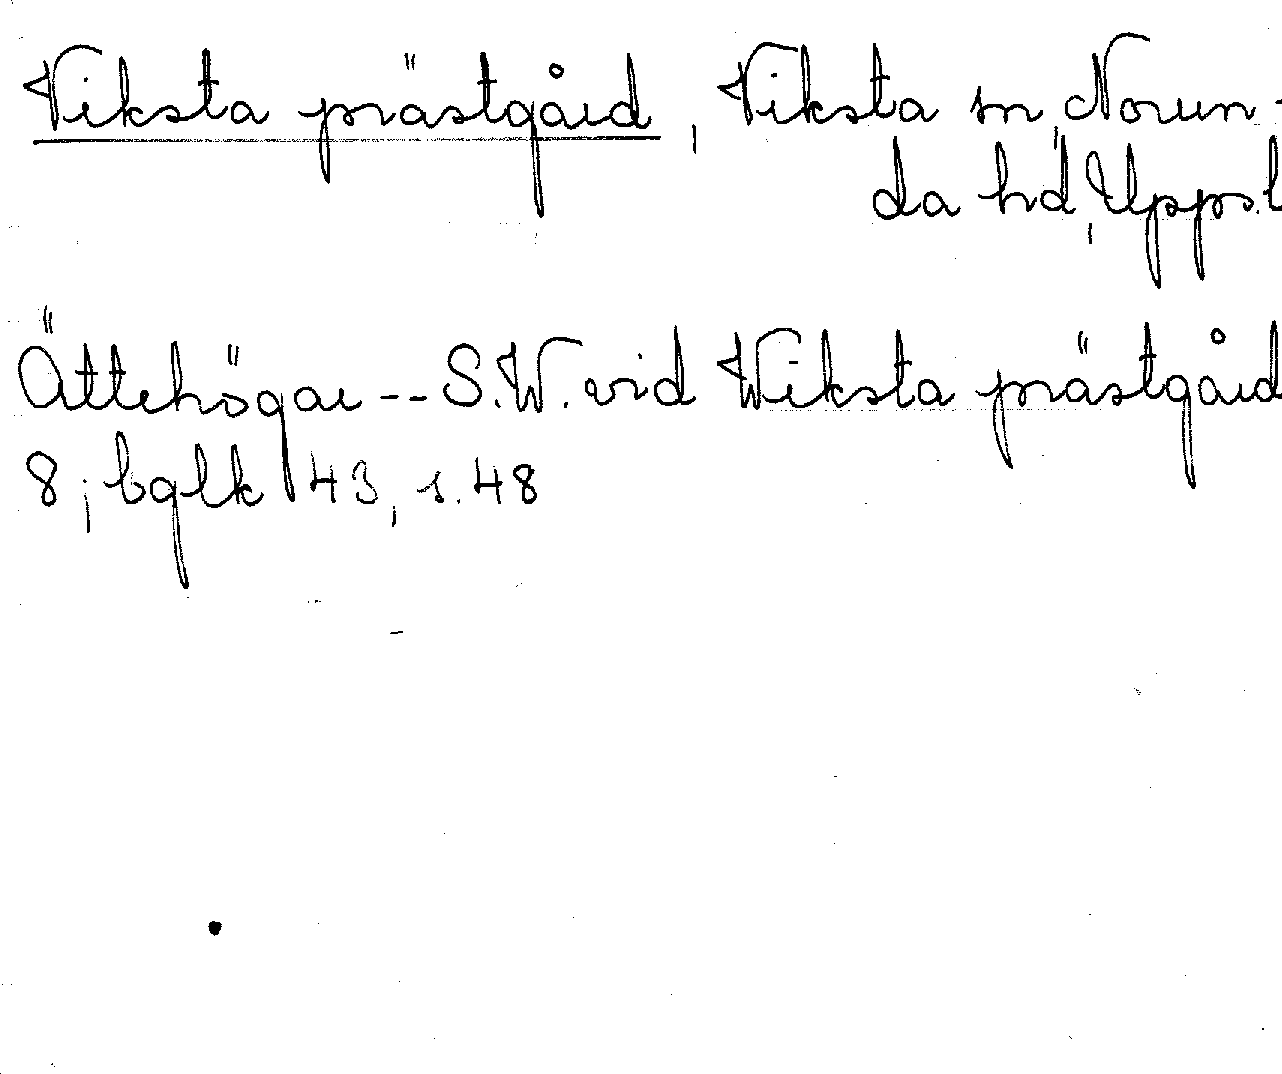 Viksta prästgård, Viksta sn Norun-
da hd, Upps.l
Ättehögar -- S.W. vid Wiksta prästgård
8; bglk 43, s. 48